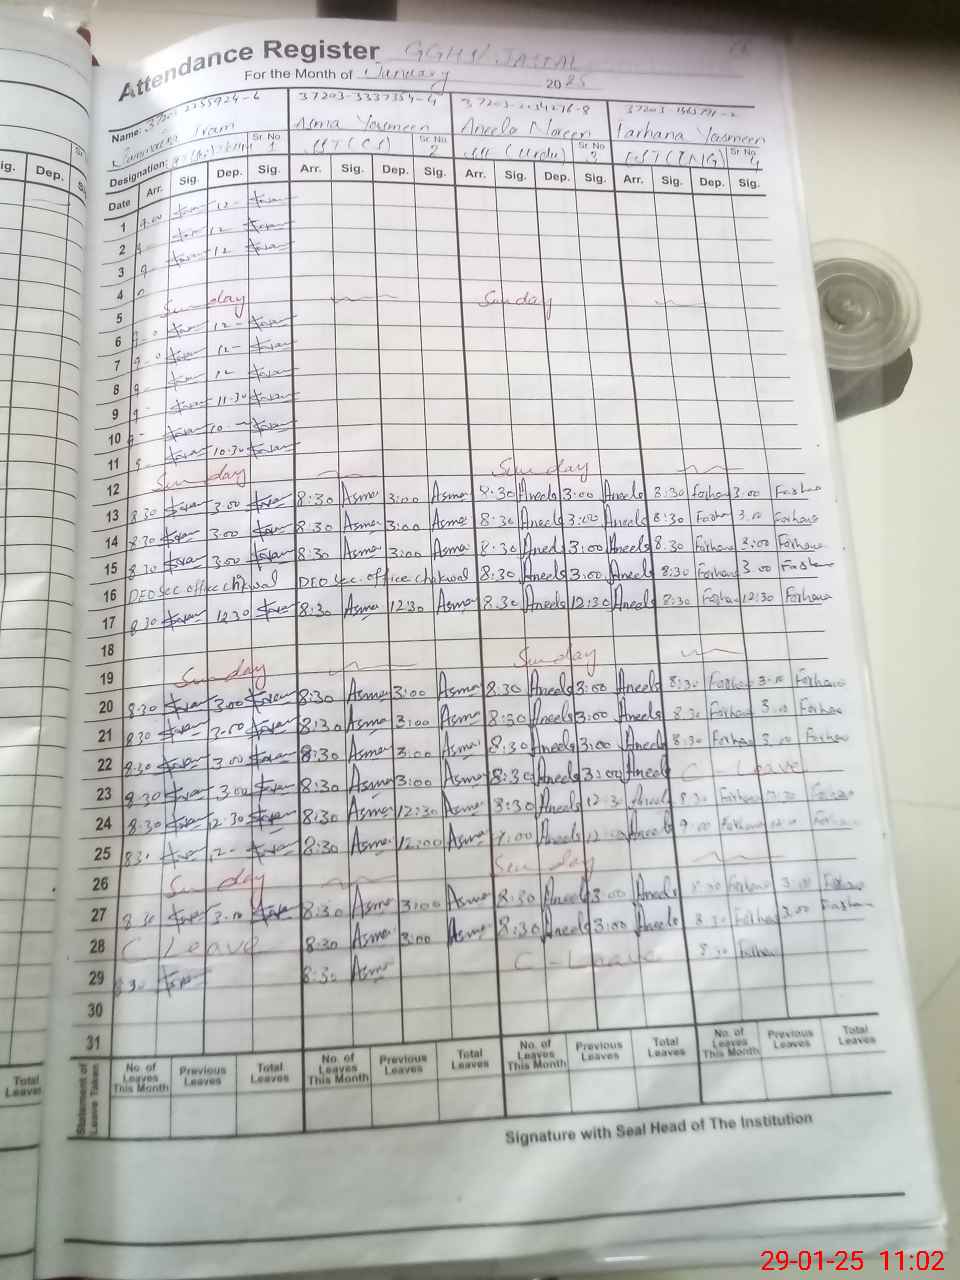 Attendance Register GGHS JASIAL
For the Month of January 2025
37203-3337354-4
Name: Iram Asma Yasmeen Aneela Noreen Farhana Yasmeen
Designation: Sr. No. 1 Sr. No. 2 (Urdu) Sr. No. 3 EST (ENG) Sr. No. 4
Date Arr. Sig. Dep. Sig. Arr. Sig. Dep. Sig. Arr. Sig. Dep. Sig. Arr. Sig. Dep. Sig.
ig. Dep.
1 9.00 Iram 12 - Iram
2 9 - Iram 12 Iram
3 9 - Iram 12 Iram
4
5 Sunday Sunday
6 Iram 12 - Iram
7 Iram 12 - Iram
8 9 - Iram 12 Iram
9 9 - Iram 11.30 Iram
10 Iram 10 Iram
11 9 Iram 10.30 Iram
12 Sunday Sunday
13 8.30 Iram 3.00 Iram 8:30 Asma 3:00 Asma 8:30 Aneela 3:00 Aneela 8:30 Farhana 3.00 Farhana
14 8.30 Iram 3.00 Iram 8:30 Asma 3:00 Asma 8:30 Aneela 3:00 Aneela 8:30 Farhana 3.00 Farhana
15 8.30 Iram 3.00 Iram 8:30 Asma 3:00 Asma 8:30 Aneela 3:00 Aneela 8.30 Farhana 3:00 Farhana
16 DEO Sec. office chakwal DEO Sec. office chakwal 8:30 Aneela 3:00 Aneela 8:30 Farhana 3.00 Farhana
17 8.30 Iram 12.30 Iram 8:30 Asma 12:30 Asma 8.30 Aneela 12:30 Aneela 8:30 Farhana 12:30 Farhana
18
19 Sunday Sunday
20 8.30 Iram 3.00 Iram 8:30 Asma 3:00 Asma 8:30 Aneela 3:00 Aneela 8:30 Farhana 3.00 Farhana
21 8.30 Iram 3.00 Iram 8:30 Asma 3:00 Asma 8:30 Aneela 3:00 Aneela 8.30 Farhana 3.00 Farhana
22 8.30 Iram 3.00 Iram 8:30 Asma 3:00 Asma 8:30 Aneela 3:00 Aneela 8:30 Farhana 3.00 Farhana
23 8.30 Iram 3.00 Iram 8:30 Asma 3:00 Asma 8:30 Aneela 3:00 Aneela C - Leave
24 8.30 Iram 12.30 Iram 8:30 Asma 12:30 Asma 8:30 Aneela 12:30 Aneela 8.30 Farhana Farhana
25 Iram 12 - Iram 8:30 Asma 12:00 Asma 9:00 Aneela Aneela 9.00 Farhana Farhana
26 Sunday Sunday
27 8.30 Iram 3.00 Iram 8:30 Asma 3:00 Asma 8:30 Aneela 3:00 Aneela 8.30 Farhana 3.00 Farhana
28 C Leave 8:30 Asma 3:00 Asma 8:30 Aneela 3:00 Aneela 8.30 Farhana 3.00 Farhana
29 8.30 Iram 8:30 Asma C - Leave 8.30 Farhana
30
31
Statement of Leave Taken No. of Leaves This Month Previous Leaves Total Leaves No. of Leaves This Month Previous Leaves Total Leaves No. of Leaves This Month Previous Leaves Total Leaves No. of Leaves This Month Previous Leaves Total Leaves
Total Leaves
Signature with Seal Head of The Institution
29-01-25 11:02